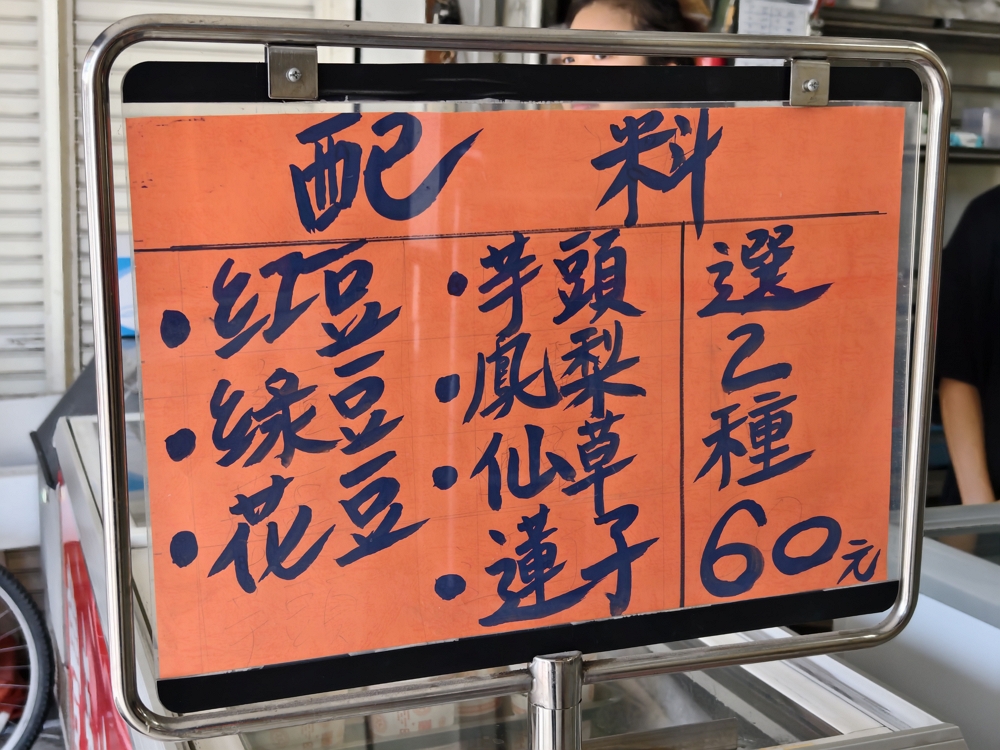 配料
•紅豆
•綠豆
•花豆
•芋頭
•鳳梨
•仙草
•蓮子
選
2
種
60元